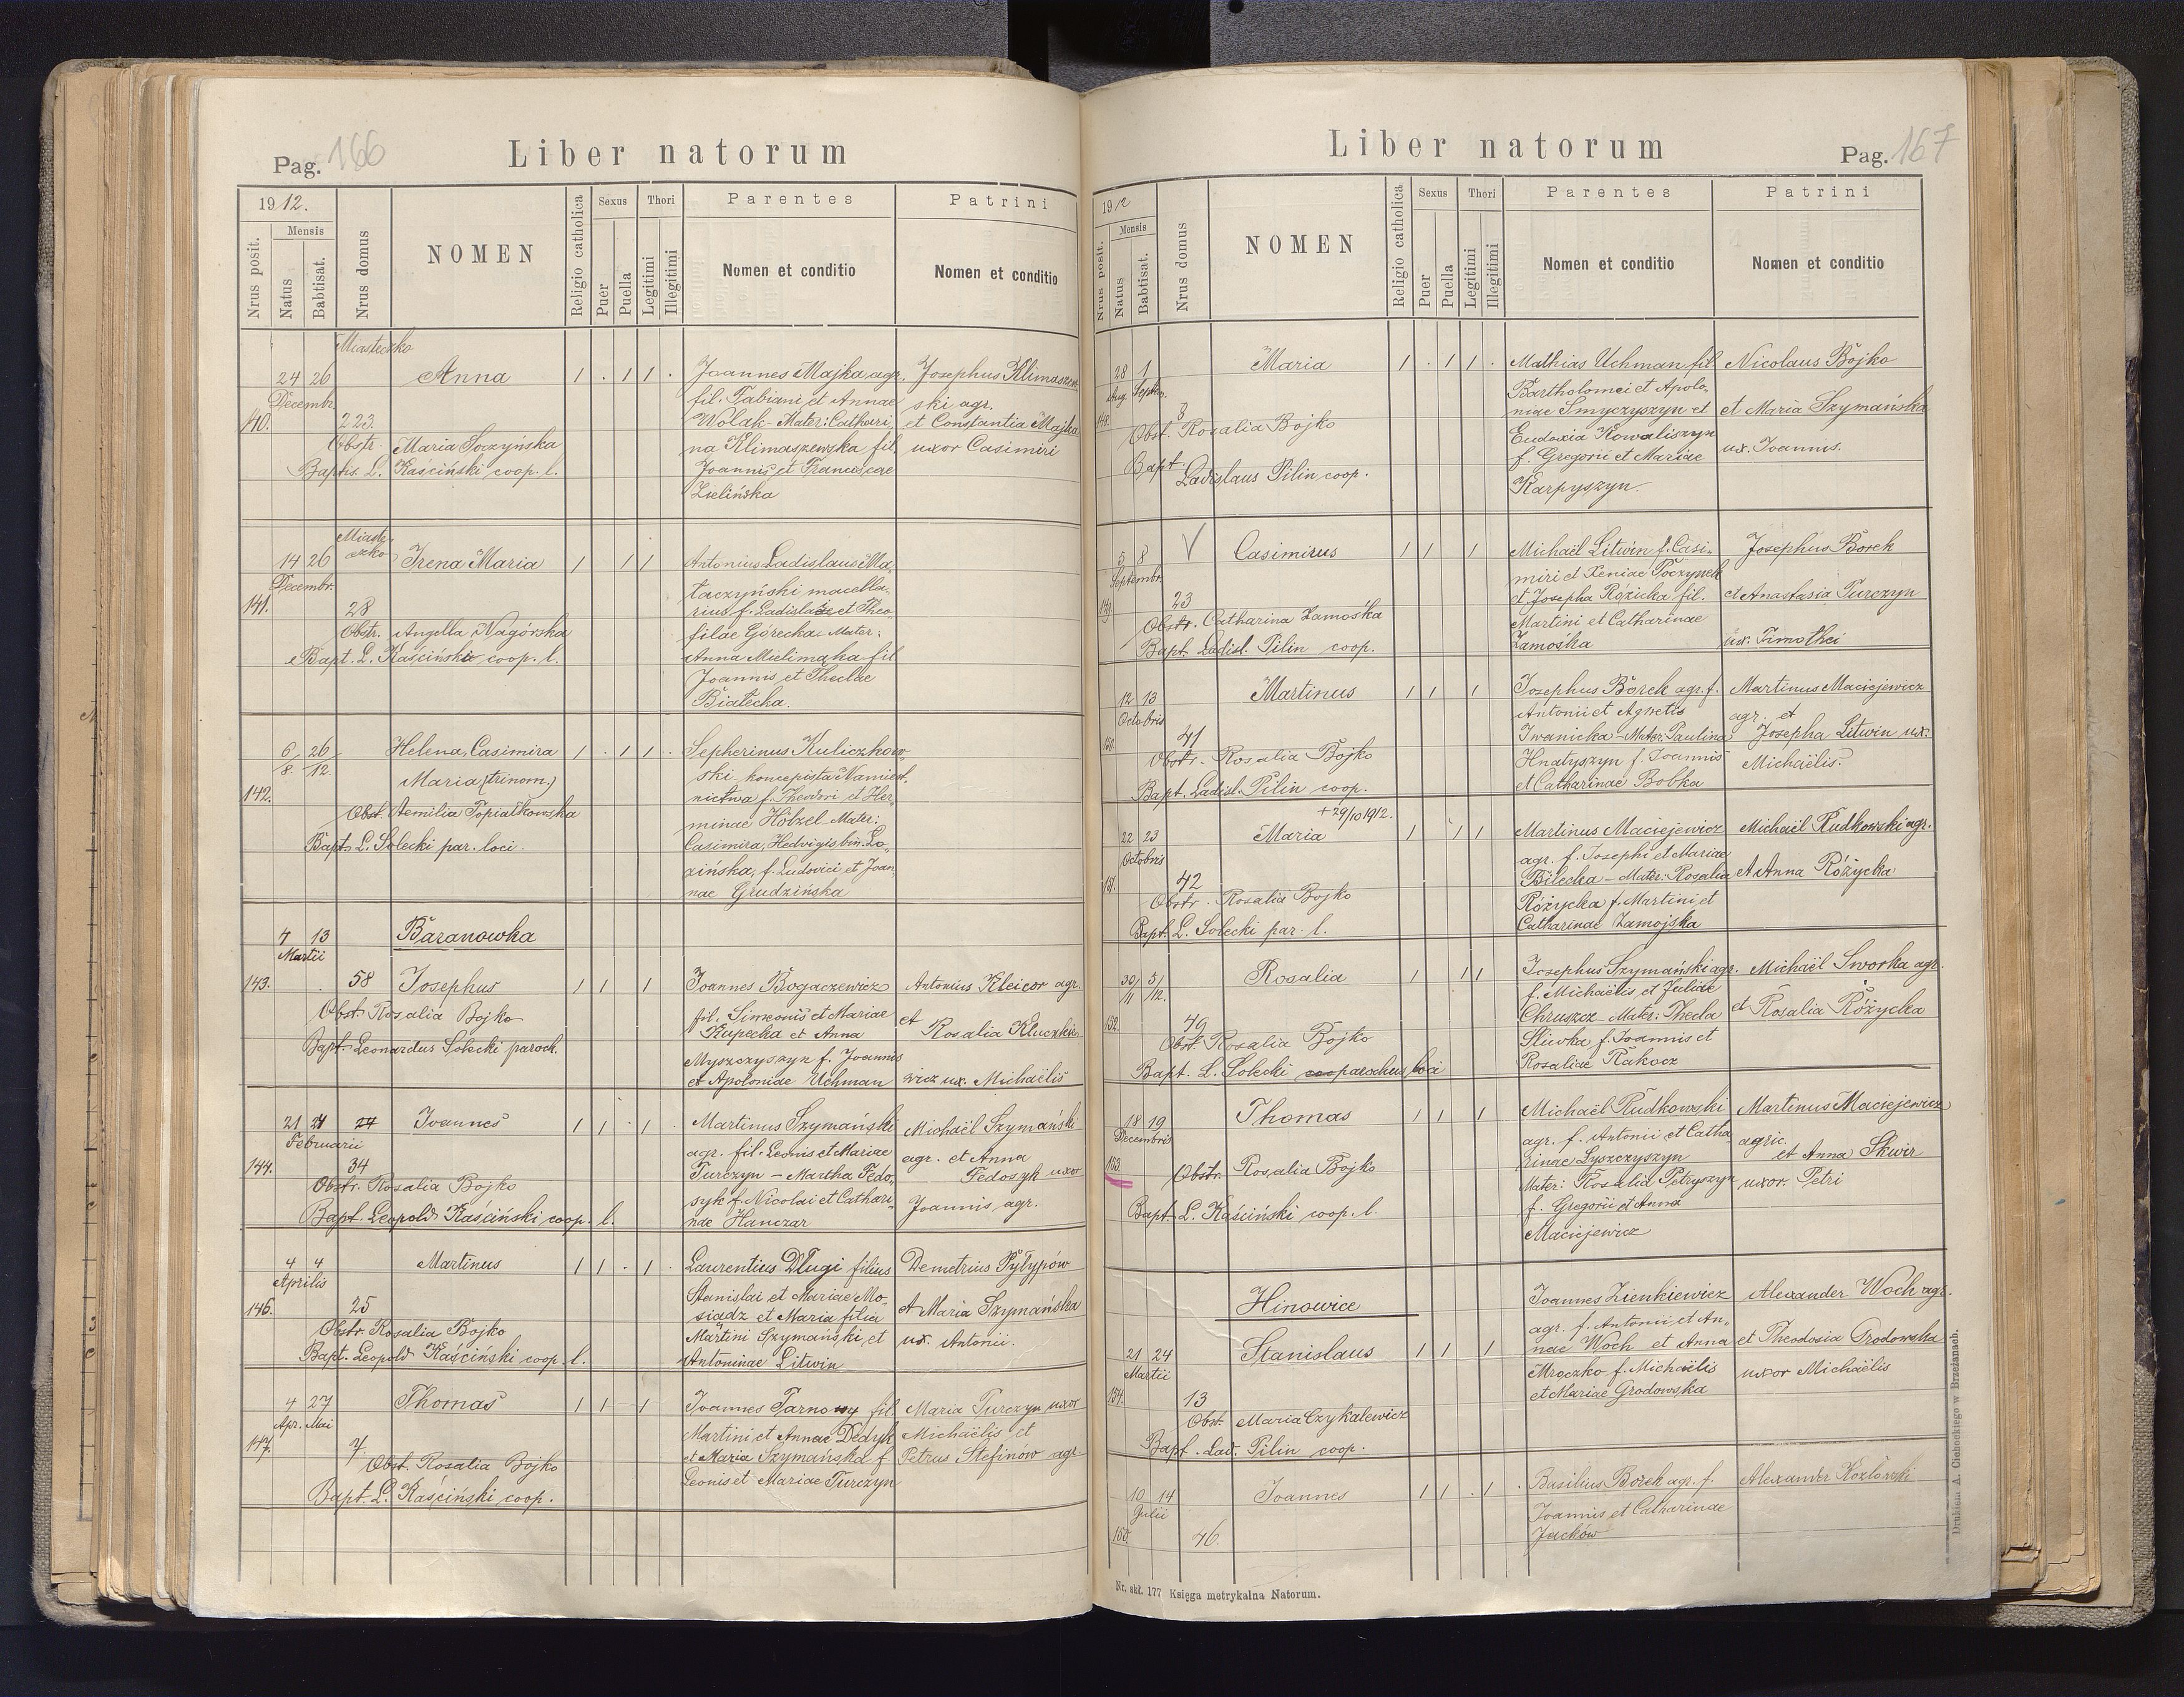 Pag. 166
Liber natorum
1912.
Nrus posit.
Mensis
Natus
Babtisat.
Nrus domus
NOMEN
Religio catholica
Sexus
Puer
Puella
Thori
Legitimi
Illegitimi
Parentes
Nomen et conditio
Patrini
Nomen et conditio
Miasteczko
140.
24 26
Decembr.
223.
Anna
1 . 1 1 .
Obstr. Maria Soczyńska
Baptis. L. Kaściński coop. l.
Joannes Majka agr.
fil. Fabiani et Annae
Wolak - Mater: Cathari
na Klimaszewska fil.
Joannis et Franciscae
Zielińska
Josephus Klimaszew
ski agr.
et Constantia Majka
uxor Casimiri
Miaste
czko
141.
14 26
Decembr.
28
Irena Maria
1 1 1
Obstr. Angella Nagórska
Bapt. L. Kaściński coop. l.
Antonius Ladislaus Ma
taczyński macella-
rius f. Ladislai et Theo
filae Górecka Mater:
Anna Mielimąka fil
Joannis et Theclae
Białecka.
142.
6/8. 26/12.
Helena, Casimira
Maria (trinom.)
1 . 1 1 .
Obst. Aemilia Popiałkowska
Bapt. L. Solecki par. loci.
Sepherinus Kuliczkow-
ski koncepista Namiest.
nictwa f. Theodori et Her-
minae Hölzel Mater:
Casimira, Hedvigis bin. Ło-
zińska, f. Ludovici et Joan
nae Grudzińska
Baranowka
143.
4 13
Martii
58
Josephus
1 1 1
Obst. Rosalia Bojko
Bapt. Leonardus Solecki paroch.
Joannes Bogaczewicz
fil. Simeonis et Mariae
Kupecka et Anna
Myszczyszyn f. Joannis
et Apoloniae Uchman
Antonius Kleicor agr.
et
Rosalia Kluczkie-
wicz ux. Michaëlis
144.
21 21
Februarii
34
Joannes
1 1 . 1 .
Obstr. Rosalia Bojko
Bapt. Leopold Kaściński coop. l.
Martinus Szymański
agr. fil. Leonis et Mariae
Turczyn - Martha Fedo
syk f. Nicolai et Cathari-
nae Hanczar
Michaël Szymański
agr. et Anna
Fedosyk uxor
Joannis agr.
146.
4 4
Aprilis
25
Martinus
1 1 . 1 .
Obstr. Rosalia Bojko
Bapt. Leopold Kaściński coop. l.
Laurentius Długi filius
Stanislai et Mariae Mo-
siądz et Maria filia
Martini Szymański et
Antoninae Litwin
Demetrius Pyłypów
et Maria Szymańska
ux. Antonii.
147.
4 27
Apr. Mai
7
Thomas
1 1 1
Obst. Rosalia Bojko
Bapt. L. Kaściński coop.
Joannes Tarnowy fil
Martini et Annae Dedyk
et Maria Szymańska f.
Leonis et Mariae Turczyn
Maria Turczyn uxor
Michaëlis et
Petrus Stefinow agr.
Liber natorum
Pag. 167
1912
Nrus posit.
Mensis
Natus
Babtisat.
Nrus domus
NOMEN
Religio catholica
Sexus
Puer
Puella
Thori
Legitimi
Illegitimi
Parentes
Nomen et conditio
Patrini
Nomen et conditio
148.
28 1
Aug. Septbr.
8
Maria
1 . 1 1 .
Obst. Rosalia Bojko
Bapt
Ladislaus Pilin coop.
Mathias Uchman fil.
Bartholomei et Apolo-
niae Smyczyszyn et
Eudoxia Kowaliszyn
f. Gregorii et Mariae
Karpyszyn.
Nicolaus Bojko
et Maria Szymańska
ux. Joannis.
149.
5 8
Septembr.
V
23
Casimirus
1 1 1
Obstr. Catharina Zamośka
Bapt. Ladisl. Pilin coop.
Michaël Litwin f. Casi-
miri et Xeniae Poczynek
et Josepha Różicka fil.
Martini et Catharinae
Zamośka
Josephus Borek
et Anastasia Turczyn
ux. Timothei
150.
12 13
Octobris
41
Martinus
1 1 1
Obstr. Rosalia Bojko
Bapt. Ladisl. Pilin coop.
Josephus Borek agr. f.
Antonii et Agnetis
Iwanicka - Mater: Paulina
Hnatyszyn f. Joannis
et Catharinae Bobka
Martinus Maciejewicz
agr. et
Josepha Litwin ux.
Michaëlis.
+ 29/10 1912.
151.
22 23
Octobris
42
Maria
1 1 1
Obstr. Rosalia Bojko
Bapt. L. Solecki par. l.
Martinus Maciejewicz
agr. f. Josephi et Mariae
Bilecka - Mater: Rosalia
Różycka f. Martini et
Catharinae Zamojska
Michaël Rudkowski agr.
et Anna Różycka
152.
30/11 5/12.
49
Rosalia
1 1 1
Obst. Rosalia Bojko
Bapt. L. Solecki parochus loci
Josephus Szymański agr.
f. Michaëlis et Juliae
Chruszcz - Mater: Thecla
Sliwka f. Joannis et
Rosaliae Rakocz
Michaël Sworka agr.
et Rosalia Różycka
153
18 19
Decembris
Thomas
1 1 1
Obstr. Rosalia Bojko
Bapt. L. Kaściński coop. l.
Michaël Rudkowski
agr. f. Antonii et Catha
rinae Łyszczyszyn
Mater: Rosalia Petryszyn
f. Gregorii et Anna
Maciejewicz
Martinus Maciejewicz
agric.
et Anna Skwir
uxor Petri
Hinowice
154.
21 24
Martii
13
Stanislaus
1 1 1
Obst. Maria Czykalewicz
Bapt. Lad. Pilin coop.
Joannes Zienkiewicz
agr. f. Antonii et An-
nae Woch et Anna
Mroczko f. Michaëlis
et Mariae Grodowska
Alexander Woch agr.
et Theodosia Grodowska
uxor Michaëlis
155.
10 14
Julii
46.
Joannes
1 1 . 1 .
Basilius Borek agr. f.
Joannis et Catharinae
Jacków
Alexander Kozlowski
Nr. skł. 177 Księga metrykalna Natorum.
Drukiem A. Cichockiego w Brzeżanach.